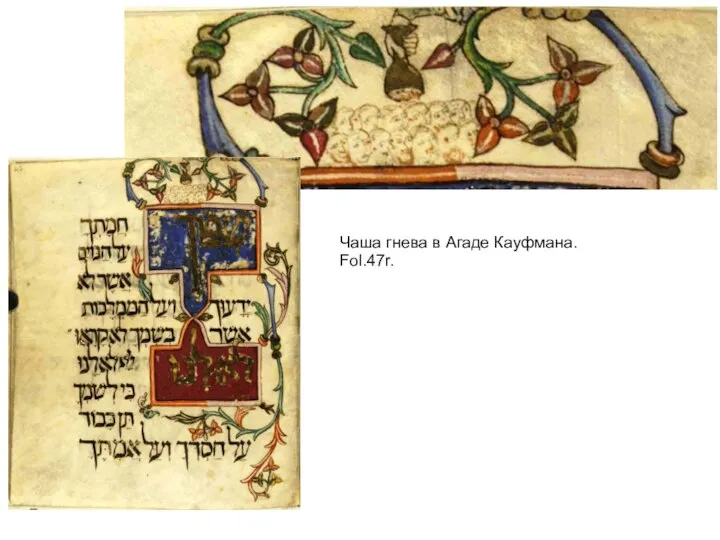 שפך
חמתך
על הגוים
אשר לא
ידעוך ועל הממלכות
אשר בשמך לא קראו
לא לנו
לא לנו
כי לשמך
תן כבוד
על חסדך ועל אמתך
Чаша гнева в Агаде Кауфмана.
Fol.47r.